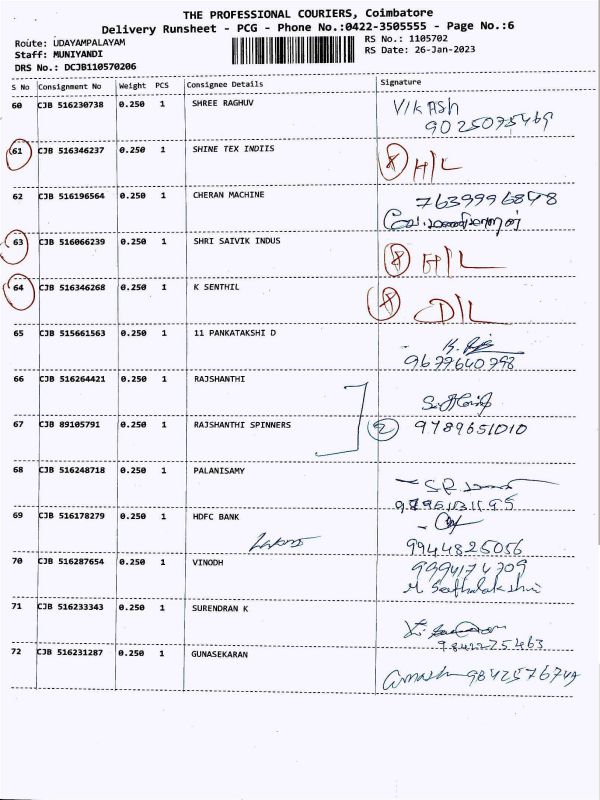 THE PROFESSIONAL COURIERS, Coimbatore
Delivery Runsheet - PCG - Phone No.:0422-3505555 - Page No.:6
Route: UDAYAMPALAYAM
RS No.: 1105702
Staff: MUNIYANDI
RS Date: 26-Jan-2023
DRS No.: DCJB110570206
S No Consignment No Weight PCS Consignee Details Signature
60 CJB 516230738 0.250 1 SHREE RAGHUV VIKASH
9025075469
61 CJB 516346237 0.250 1 SHINE TEX INDIIS H/L
62 CJB 516196564 0.250 1 CHERAN MACHINE 7639996898
63 CJB 516066239 0.250 1 SHRI SAIVIK INDUS H/L
64 CJB 516346268 0.250 1 K SENTHIL D/L
65 CJB 515661563 1 11 PANKATAKSHI D
0.250
9677640798
66 CJB 516264421 0.250 1 RAJSHANTHI
67 CJB 89105791 0.250 1 RAJSHANTHI SPINNERS 2 9789651010
68 CJB 516248718 0.250 1 PALANISAMY
69 CJB 516178279 0.250 1 HDFC BANK
9944825056
70 CJB 516287654 0.250 1 VINODH 9994174709
71 CJB 516233343 0.250 1 SURENDRAN K
9842225463
72 CJB 516231287 0.250 1 GUNASEKARAN